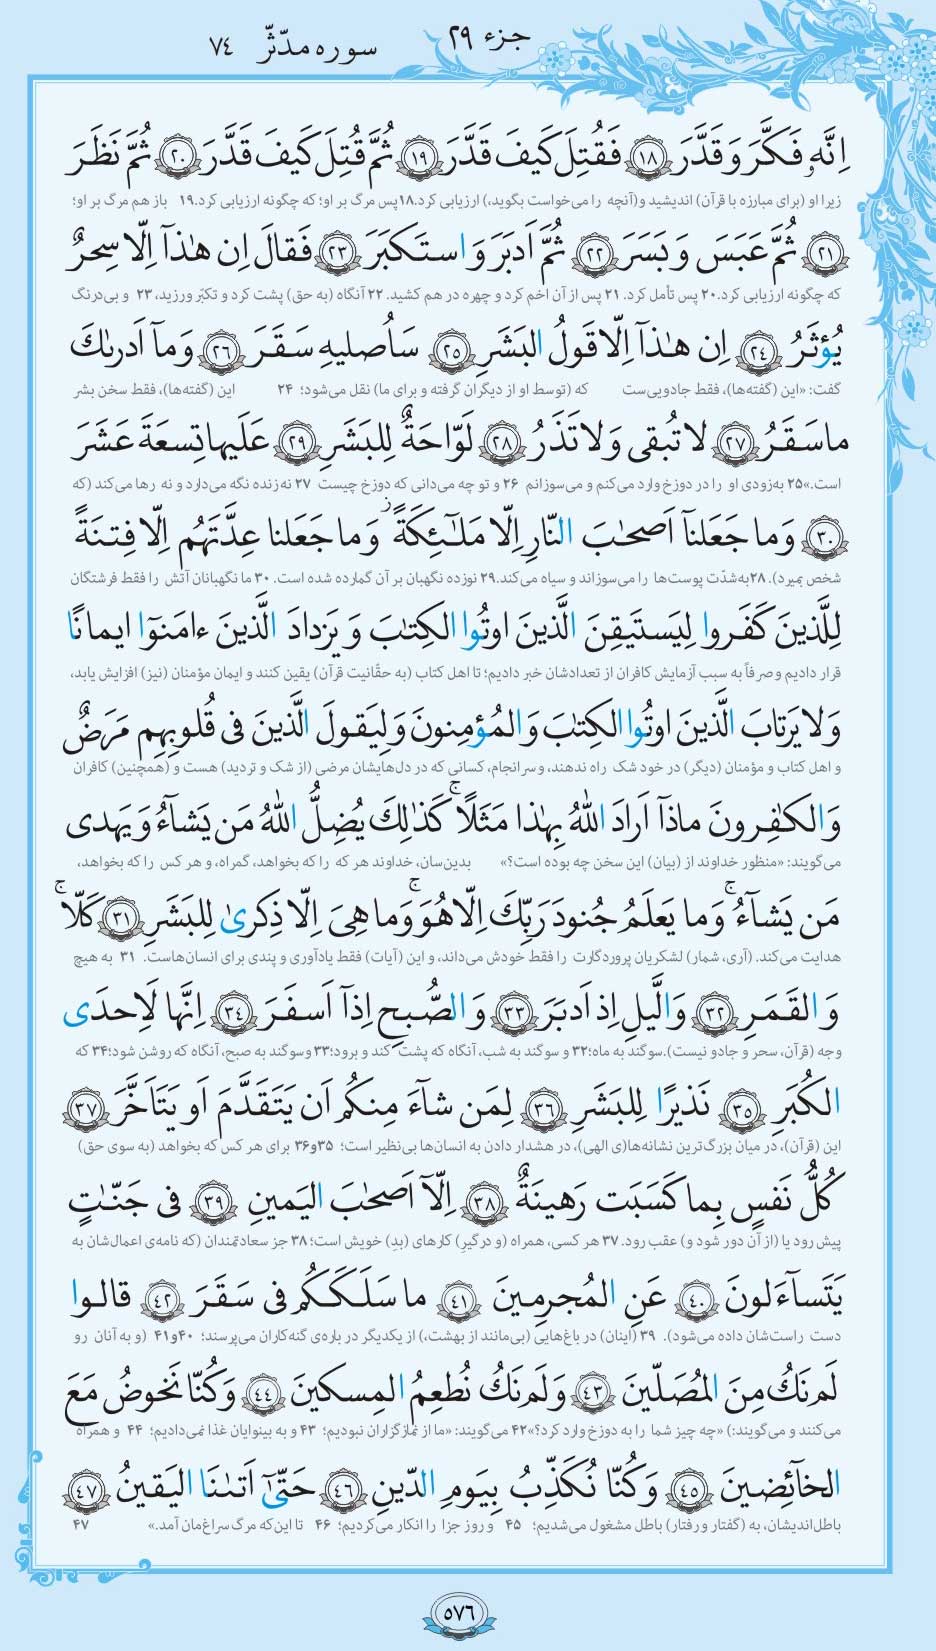 جزء ۲۹ سوره مدّثّر ۷۴
اِنَّهٗ فَكَّرَ وَ قَدَّرَ ۱۸ فَقُتِلَ كَيفَ قَدَّرَ ۱۹ ثُمَّ قُتِلَ كَيفَ قَدَّرَ ۲۰ ثُمَّ نَظَرَ
زیرا او (برای مبارزه با قرآن) اندیشید و (آنچه را می‌خواست بگوید،) ارزیابی کرد.۱۸ پس مرگ بر او؛ که چگونه ارزیابی کرد.۱۹ باز هم مرگ بر او؛
۲۱ ثُمَّ عَبَسَ وَ بَسَرَ ۲۲ ثُمَّ اَدبَرَ وَ استَكبَرَ ۲۳ فَقالَ اِن هٰذآ اِلّا سِحرٌ
که چگونه ارزیابی کرد.۲۰ پس تأمل کرد. ۲۱ پس از آن اخم کرد و چهره در هم کشید. ۲۲ آنگاه (به حق) پشت کرد و تکبّر ورزید، ۲۳ و بی‌درنگ
يُؤثَرُ ۲۴ اِن هٰذآ اِلّا قَولُ البَشَرِ ۲۵ سَاُصليهِ سَقَرَ ۲۶ وَ مآ اَدرىٰكَ
گفت: «این (گفته‌ها)، فقط جادویی‌ست که (توسط او از دیگران گرفته و برای ما) نقل می‌شود؛ ۲۴ این (گفته‌ها)، فقط سخن بشر
ما سَقَرُ ۲۷ لا تُبقى وَ لا تَذَرُ ۲۸ لَوّاحَةٌ لِلبَشَرِ ۲۹ عَلَيها تِسعَةَ عَشَرَ
است.»۲۵ به‌زودی او را در دوزخ وارد می‌کنم و می‌سوزانم ۲۶ و تو چه می‌دانی که دوزخ چیست ۲۷ نه زنده نگه می‌دارد و نه رها می‌کند (که
۳۰ وَ ما جَعَلنآ اَصحٰبَ النّارِ اِلّا مَلٰٓئِكَةً ۙ وَ ما جَعَلنا عِدَّتَهُم اِلّا فِتنَةً
شخص بمیرد). ۲۸ به‌شدّت پوست‌ها را می‌سوزاند و سیاه می‌کند.۲۹ نوزده نگهبان بر آن گمارده شده است. ۳۰ ما نگهبانان آتش را فقط فرشتگان
لِلَّذينَ كَفَروا لِيَستَيقِنَ الَّذينَ اوتُوا الكِتٰبَ وَ يَزدادَ الَّذينَ ءامَنوٓا ايمانًا
قرار دادیم و صرفاً به سبب آزمایش کافران از تعدادشان خبر دادیم؛ تا اهل کتاب (به حقّانیت قرآن) یقین کنند و ایمان مؤمنان (نیز) افزایش یابد،
وَ لا يَرتابَ الَّذينَ اوتُوا الكِتٰبَ وَ المُؤمِنونَ وَ لِيَقولَ الَّذينَ فى قُلوبِهِم مَرَضٌ
و اهل کتاب و مؤمنان (دیگر) در خود شک راه ندهند، و سرانجام، کسانی که در دل‌هایشان مرضی (از شک و تردید) هست و (همچنین) کافران
وَ الكٰفِرونَ ماذآ اَرادَ اللهُ بِهٰذا مَثَلًا ۚ كَذٰلِكَ يُضِلُّ اللهُ مَن يَشآءُ وَ يَهدى
می‌گویند: «منظور خداوند از (بیان) این سخن چه بوده است؟» بدین‌سان، خداوند هر که را که بخواهد، گمراه، و هر کس را که بخواهد،
مَن يَشآءُ ۚ وَ ما يَعلَمُ جُنودَ رَبِّكَ اِلّا هُوَ ۚ وَ ما هِىَ اِلّا ذِكرىٰ لِلبَشَرِ ۳۱ كَلّا ۚ
هدایت می‌کند. (آری، شمار) لشکریان پروردگارت را فقط خودش می‌داند، و این (آیات) فقط یادآوری و پندی برای انسان‌هاست. ۳۱ به هیچ
وَ القَمَرِ ۳۲ وَ الَّيلِ اِذ اَدبَرَ ۳۳ وَ الصُّبحِ اِذآ اَسفَرَ ۳۴ اِنَّها لَاِحدَى
وجه (قرآن، سحر و جادو نیست). سوگند به ماه؛۳۲ و سوگند به شب، آنگاه که پشت کند و برود؛۳۳ و سوگند به صبح، آنگاه که روشن شود؛۳۴ که
الكُبَرِ ۳۵ نَذيرًا لِلبَشَرِ ۳۶ لِمَن شآءَ مِنكُم اَن يَتَقَدَّمَ اَو يَتَاَخَّرَ ۳۷
این (قرآن)، در میان بزرگ‌ترین نشانه‌ها(ی الهی)، در هشدار دادن به انسان‌ها بی‌نظیر است؛ ۳۵و۳۶ برای هر کس که بخواهد (به سوی حق)
كُلُّ نَفسٍ بِما كَسَبَت رَهينَةٌ ۳۸ اِلّآ اَصحٰبَ اليَمينِ ۳۹ فى جَنّٰتٍ
پیش رود یا (از آن دور شود و) عقب رود. ۳۷ هر کسی، همراه (و درگیرِ) کارهای (بدِ) خویش است؛ ۳۸ جز سعادتمندان (که نامه‌ی اعمال‌شان به
يَتَسآءَلونَ ۴۰ عَنِ المُجرِمينَ ۴۱ ما سَلَكَكُم فى سَقَرَ ۴۲ قالوا
دست راست‌شان داده می‌شود). ۳۹ (اینان) در باغ‌هایی (بی‌مانند از بهشت،) از یکدیگر در باره‌ی گنه‌کاران می‌پرسند؛ ۴۰و۴۱ (و به آنان رو
لَم نَكُ مِنَ المُصَلّينَ ۴۳ وَ لَم نَكُ نُطعِمُ المِسكينَ ۴۴ وَ كُنّا نَخوضُ مَعَ
می‌کنند و می‌گویند:) «چه چیز شما را به دوزخ وارد کرد؟»۴۲ می‌گویند: «ما از نمازگزاران نبودیم؛ ۴۳ و به بینوایان غذا نمی‌دادیم؛ ۴۴ و همراه
الخآئِضينَ ۴۵ وَ كُنّا نُكَذِّبُ بِيَومِ الدّينِ ۴۶ حَتّىٰٓ اَتىٰنَا اليَقينُ ۴۷
باطل‌اندیشان، به (گفتار و رفتار) باطل مشغول می‌شدیم؛ ۴۵ و روز جزا را انکار می‌کردیم؛ ۴۶ تا این‌که مرگ سراغ‌مان آمد.» ۴۷
۵۷۶